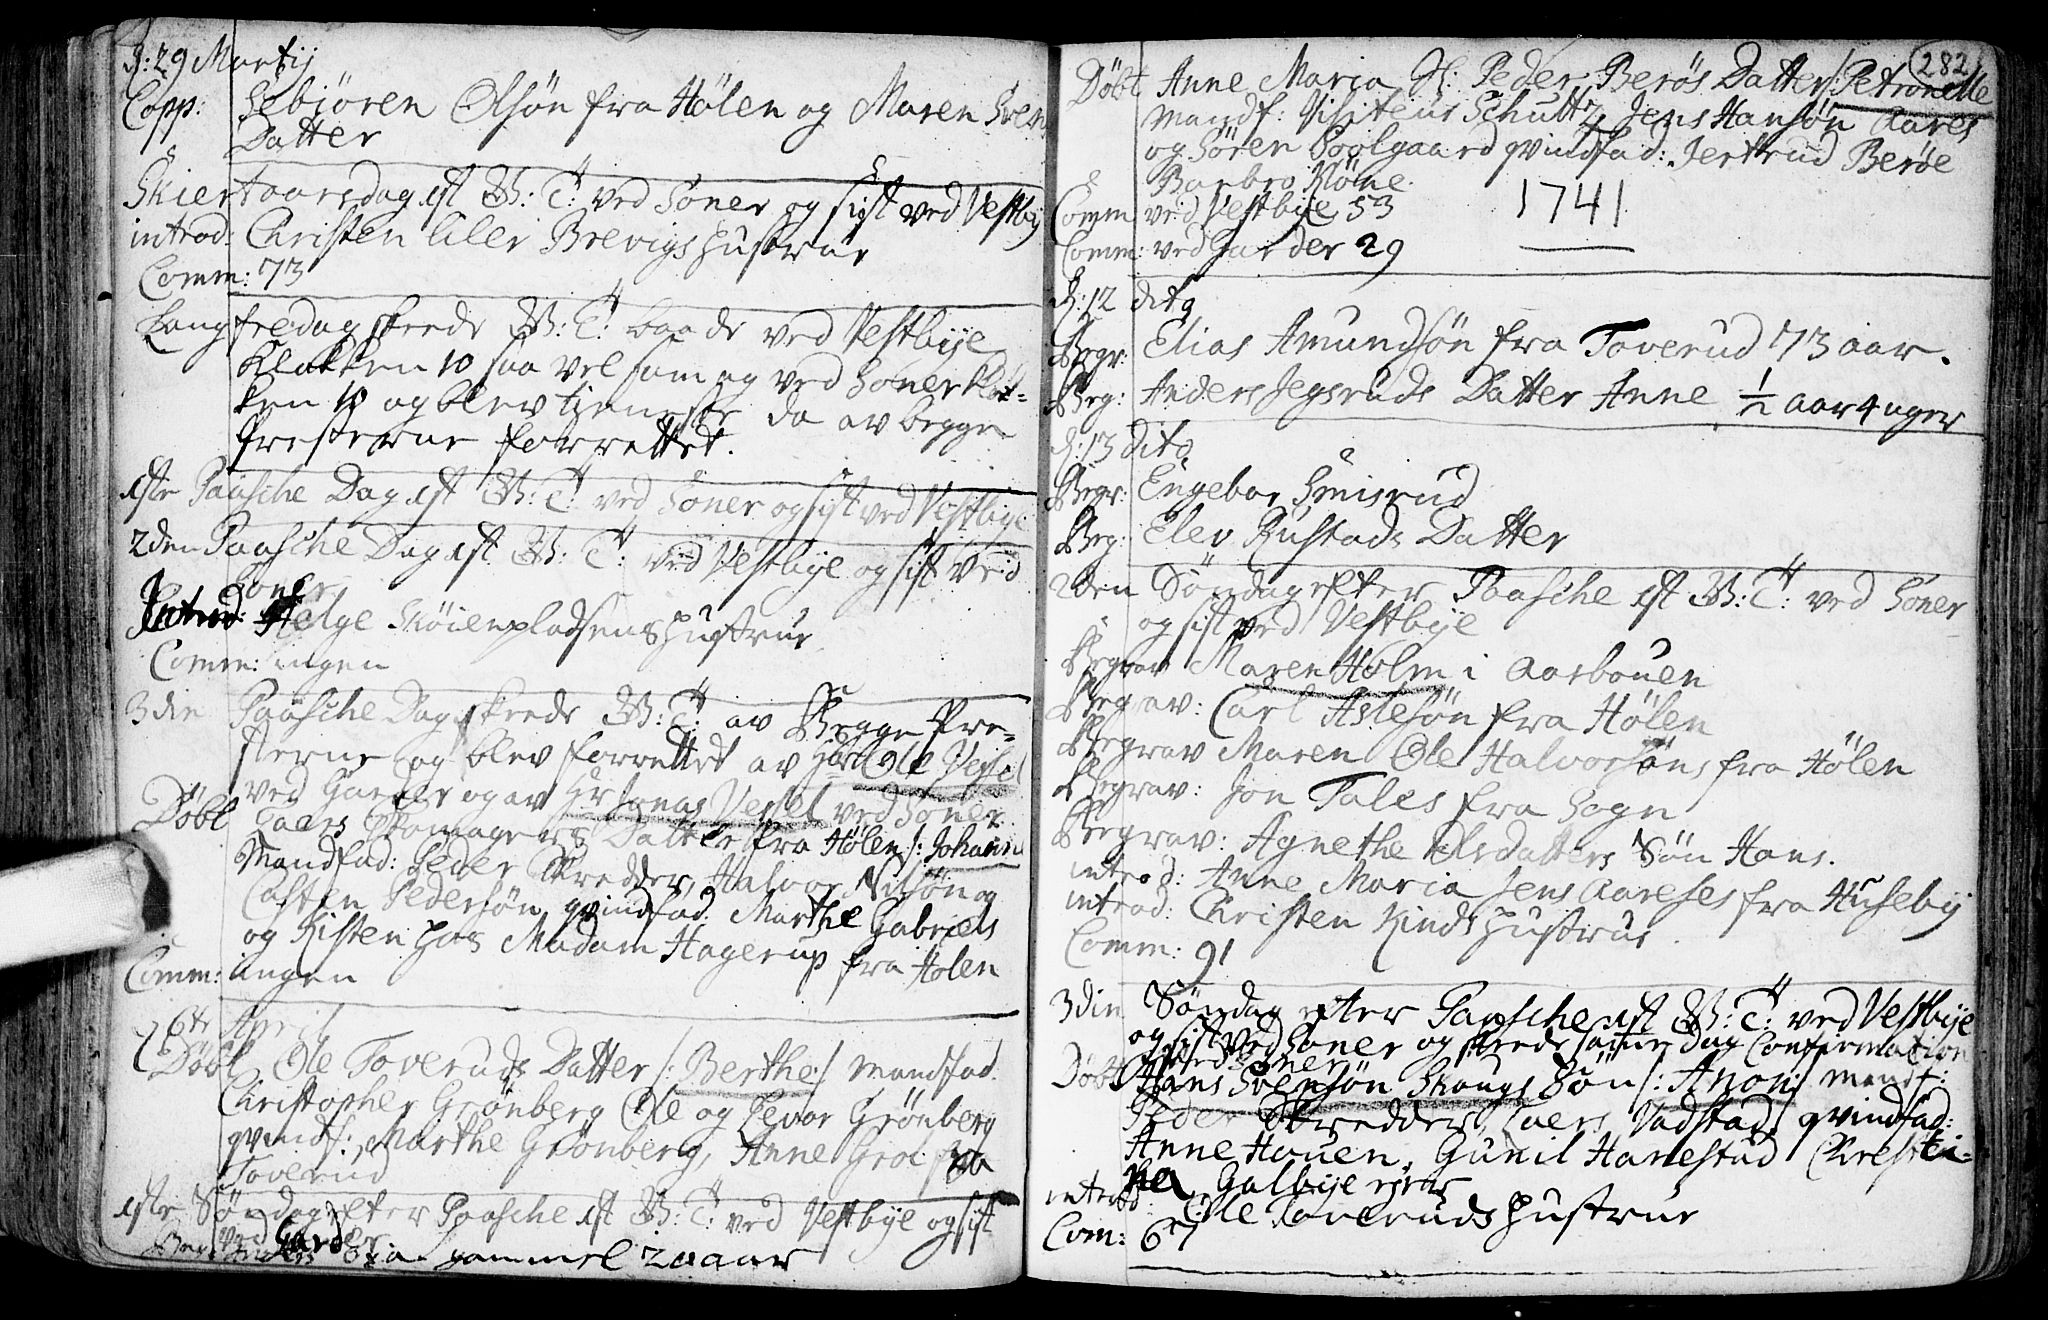 D: 29 Martij
Copp: Sebjören Olsön fra Hølen og Maren Svens
Datter
Skiertoarsdag 1st G: T: ved Soner og sist ved Vestby
introd: Christen liler Brevigs hustrue
Comm: 73
Langfredag skeede G: T: baade ved Vestbye
Klokken 10 saa vel som og ved Soner Klok-
ken 10 og blev tieneste da av begge
Presterne forrettet.
1ste Paasche Dag 1st G: T: ved Soner og sist ved Vestbye
2den Paasche Dag 1st G: T: ved Vestbye og sist ved
Soner
Introd: Helge Sköienpladsens hustrue
Comm: ingen
3die Paasche Dag skeede G: T: av Begge Pre-
sterne og blev forrettet av Hr: Ole Vessel
ved Garder og av Hr Jonas Vessel ved Soner
Döbt Laers Datter fra Hølen /: Johanne
Mandfad: Peder Skredder, Halvor Nilsön og
Casten Pedersön qvindfad: Marthe Gabriels
og Kisten hos Madam Hagerup fra Hølen
Comm: ingen
D 6te April
Döbt Ole Toveruds Datter /: Berthe :/ mandfad.
Christopher Grönberg Ole og Grönberg
qvindf: Marthe Grönberg, Anne Groe fra
Toverud
1ste Söndag efter Paasche 1st G: T: ved Vestbye og sist
ved Garder
gammel 20 aar
282
Döbt Anne Maria Sl: Peder Berös Datter /: Petronelle
mandf: Visiteur Schultz, Jens Hansön Aares
og Sören Soolgaard qvindfad: Jertrud Beröe
Barbro Klöme.
Comm ved Vestbye 53 1741
Comm: ved Garder 29
D: 12 dito
Begr: Elias Amundsön fra Toverud 73 aar.
Beg: Anders Jegsruds Datter Anne 1/2 aar 4 uger
D: 13 Dito
Begr: Engebor Smisrud
Beg: Elev Rustads Datter
2den Söndag efter Paasche 1st G: T: ved Soner
og sist ved Vestbye
Begrav Maren Holm i Aasbouen
Begrav: Carl Aslesön fra Hølen
Begrav Maren Ole Halvorsöns fra Hølen
Begrav: Jon Tales fra Sogn
Begrav: Agnethe Olsdatters Sön Hans.
introd: Anne Maria Jens Aareses fra Huseby
introd: Christen Kinds hustrue.
Comm: 91
3die Söndag efter Paasche 1st G: T: ved Vestbye
og sist ved Soner og skeede samme Dag Confirmation
ved Soner
Döbt Hans Svensön Skougs Sön /: Anon :/ mandf:
Peder Skredder, Laers Vadstad, qvindfad:
Anne Houen, Gunil Harestad Christi-
na Galbye
introd: Ole Toveruds hustrue
Com: 67